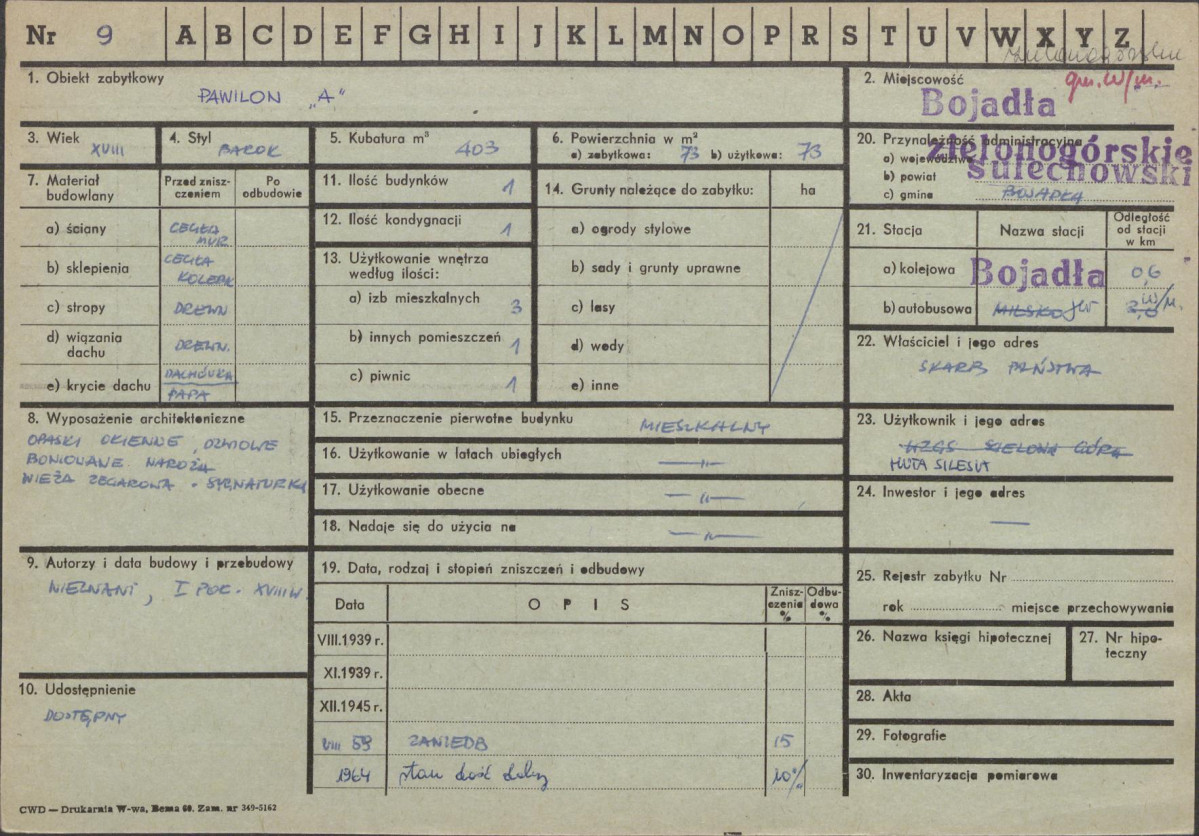 Nr 9 A B C D E F G H I J K L M N O P R S T U V W X Y Z
1. Obiekt zabytkowy
PAWILON „A"
2. Miejscowość
gm. w/m.
Bojadła
3. Wiek XVIII
4. Styl BAROK
5. Kubatura m³ 403
6. Powierzchnia w m²
a) zabytkowa: 73 b) użytkowa: 73
20. Przynależność administracyjna
a) województwo zielonogórskie
b) powiat sulechowski
c) gmina BOJADŁA
7. Materiał budowlany
Przed zniszczeniem
Po odbudowie
a) ściany CEGŁA MUR.
b) sklepienia CEGŁA KOLEBK
c) stropy DREWN
d) wiązania dachu DREWN.
e) krycie dachu DACHÓWKA PAPA
11. Ilość budynków 1
12. Ilość kondygnacji 1
13. Użytkowanie wnętrza według ilości:
a) izb mieszkalnych 3
b) innych pomieszczeń 1
c) piwnic 1
14. Grunty należące do zabytku: ha
a) ogrody stylowe
b) sady i grunty uprawne
c) lasy
d) wody
e) inne
21. Stacja
Nazwa stacji
Odległość od stacji w km
a) kolejowa Bojadła 0,6
b) autobusowa MILSKO w/m.
22. Właściciel i jego adres
SKARB PAŃSTWA
8. Wyposażenie architektoniczne
OPASKI OKIENNE, DRZWIOWE
BONIOWANE NAROŻA
WIEŻA ZEGAROWA - SYGNATURKA
15. Przeznaczenie pierwotne budynku MIESZKALNY
16. Użytkowanie w latach ubiegłych —„—
17. Użytkowanie obecne —„—
18. Nadaje się do użycia na —„—
23. Użytkownik i jego adres
ZIELONA GÓRA
HUTA SILESIA
24. Inwestor i jego adres
—
9. Autorzy i data budowy i przebudowy
NIEZNANI, I POŁ. XVIII W.
19. Data, rodzaj i stopień zniszczeń i odbudowy
Data
OPIS
Zniszczenia %
Odbudowa %
VIII.1939 r.
XI.1939 r.
XII.1945 r.
VIII 59 ZANIEDB 15
1964 stan dość dobry 20%
25. Rejestr zabytku Nr
rok miejsce przechowywania
26. Nazwa księgi hipotecznej
27. Nr hipoteczny
28. Akta
29. Fotografie
30. Inwentaryzacja pomiarowa
10. Udostępnienie
DOSTĘPNY
CWD — Drukarnia W-wa, Bema 60. Zam. nr 349-5162